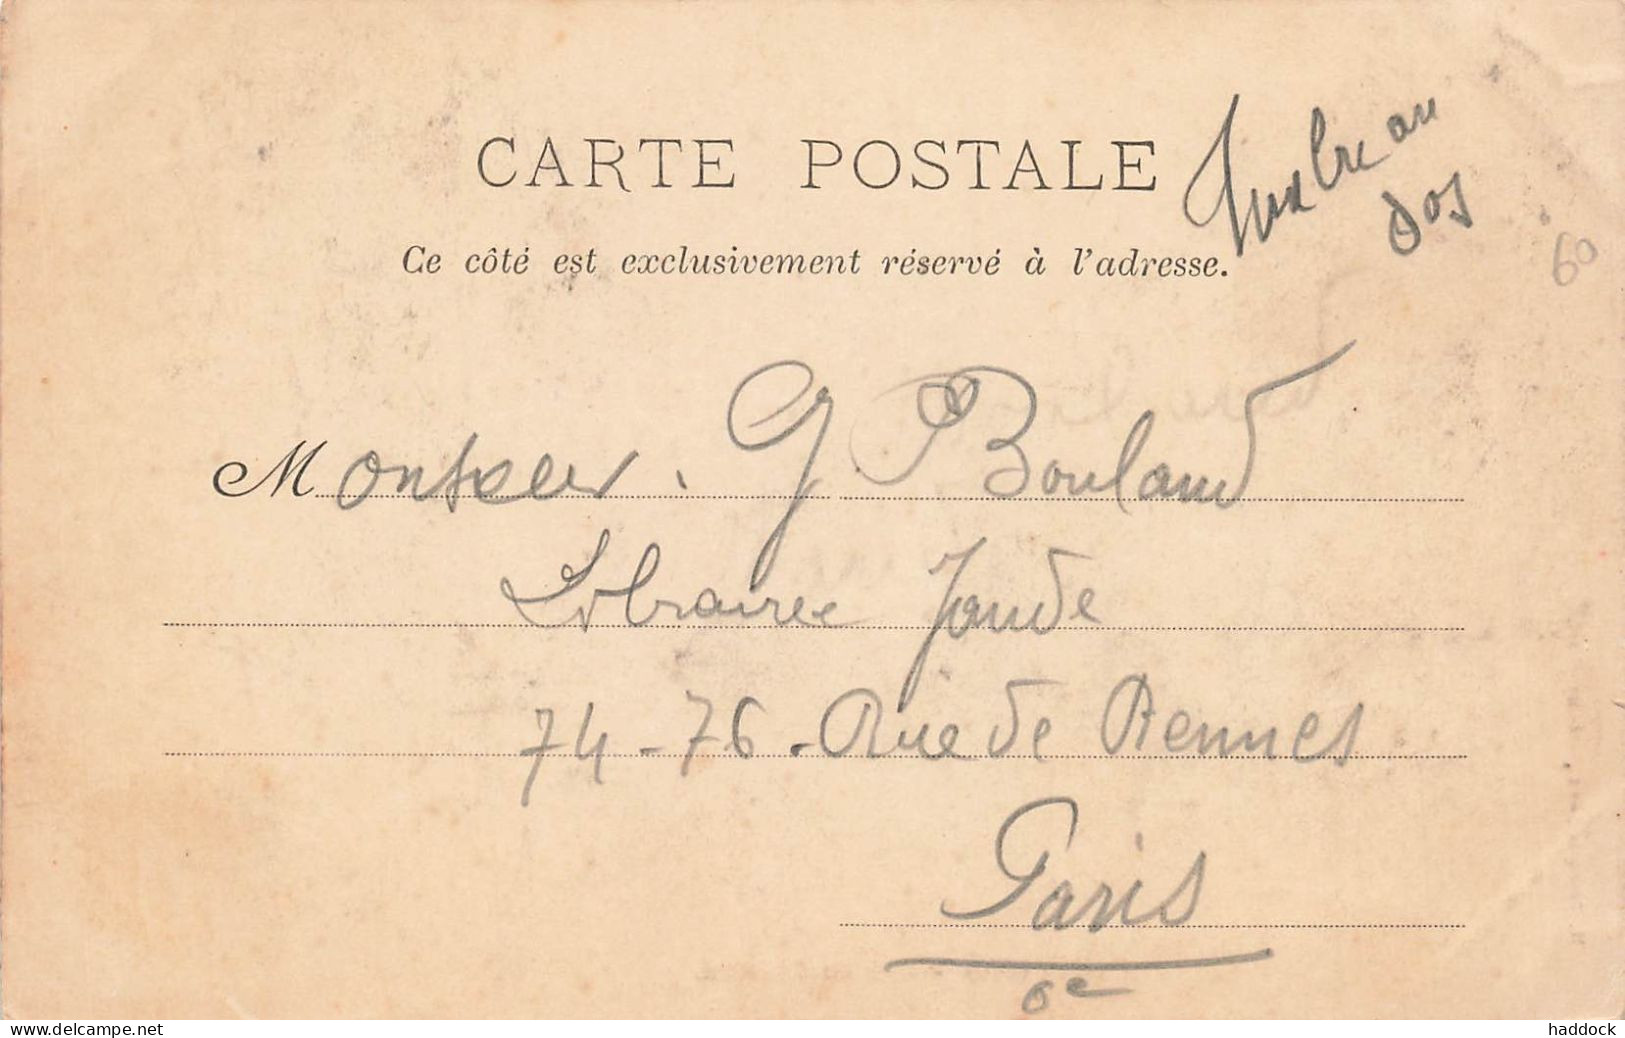 CARTE POSTALE
Timbre au
dos
Ce côté est exclusivement réservé à l'adresse.
60
Monsieur. G Bouland
Librairie Jaude
74-76. Rue de Rennes
Paris
6e
www.delcampe.net
haddock